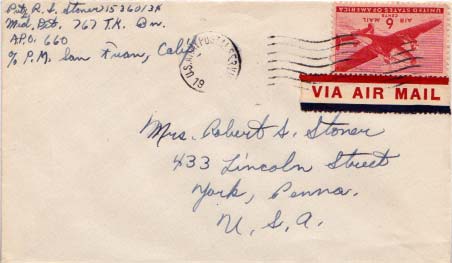 Pvt. R. S. Stoner 15360131
Med. Det. 767 T.K. Bn.
A.P.O. 660
c/o P.M. San Fran, Calif
U.S. ARMY POSTAL SERVICE
19
UNITED STATES OF AMERICA
6 CENTS
AIR MAIL
VIA AIR MAIL
Mrs. Robert S. Stoner
433 Lincoln Street
York, Penna.
U. S. A.